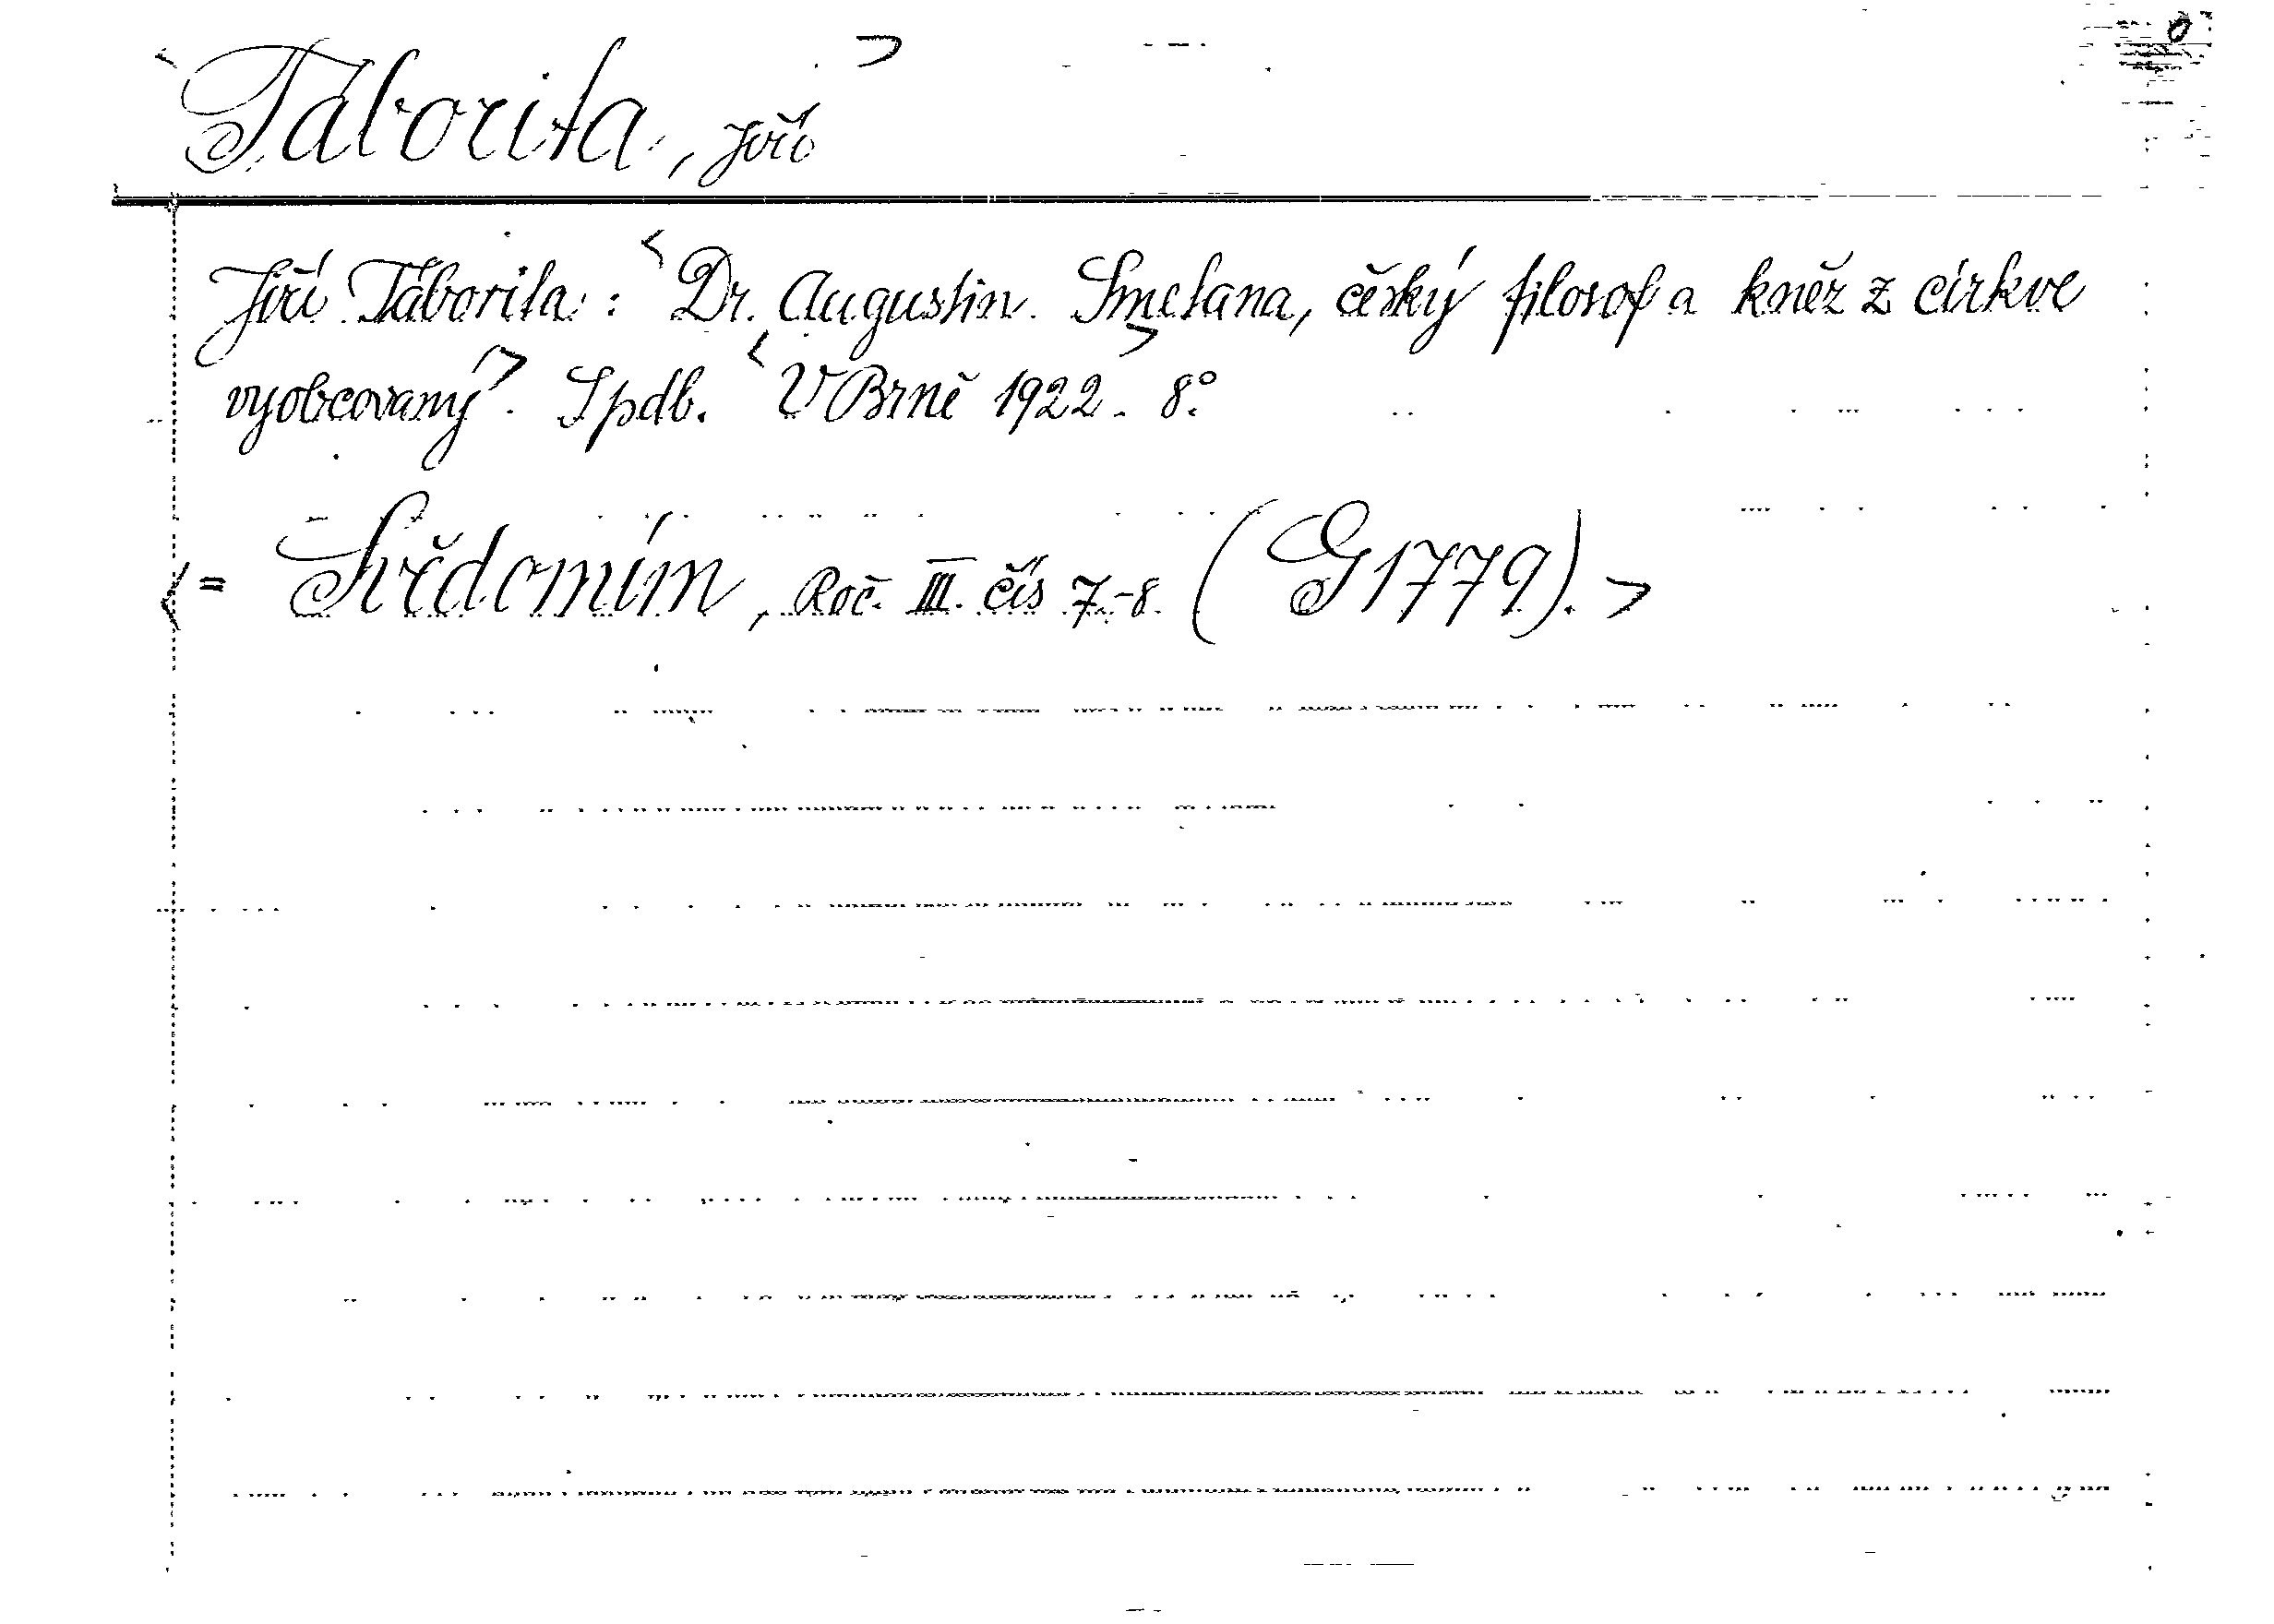 < Táborita, Jiří >
Jiří Táborita: < Dr. Augustin Smetana, český filosof a kněz z církve
vyobcovaný >. S pdb. < V Brně > 1922. 8°.
< = Svědomím, Roč. III. čís 7.-8. (G 1779). >